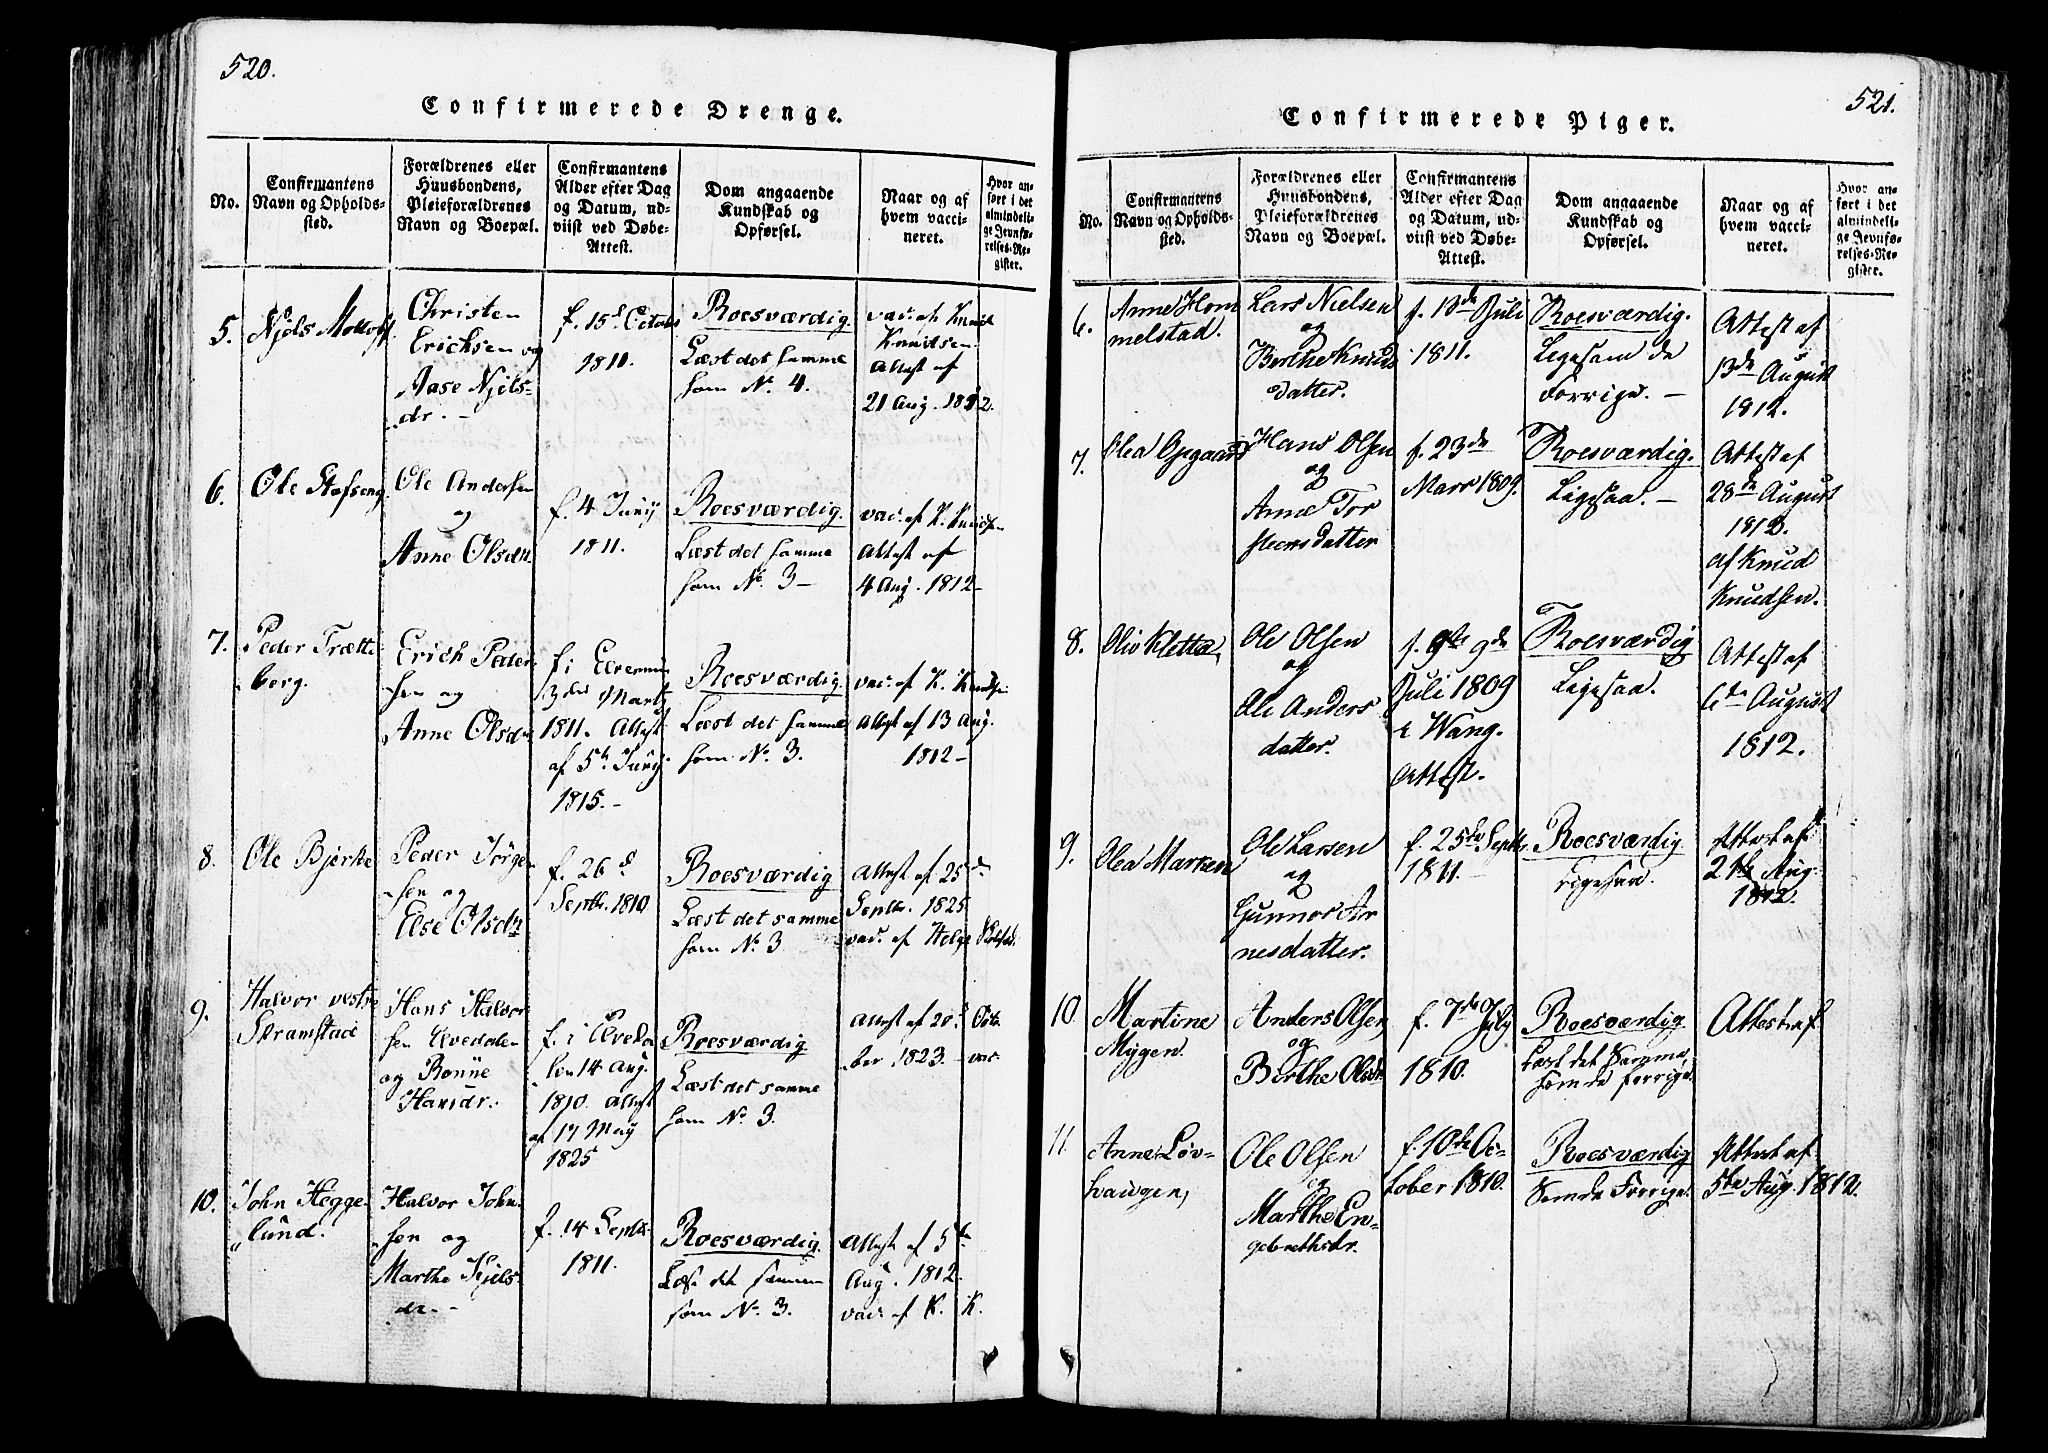 520.
Confirmerede Drenge.
No.
Confirmantens
Navn og Opholds-
sted.
Forældrenes eller
Huusbondens,
Pleieforældrenes
Navn og Boepæl.
Confirmantens
Alder efter Dag
og Datum, ud-
viist ved Døbe-
Attest.
Dom angaaende
Kundskab og
Opførsel.
Naar og af
hvem vacci-
neret.
Hvor an-
ført i det
almindeli-
ge Jevnfø-
relses-Re-
gister.
5.
Njels
Christen
Erichsen og
Aase Njels-
dr. -
f. 15d Octobr
1810.
Roesværdig.
Læst det samme
som No. 4.
vac. af Knud
Knudsen.
Attest af
21 Aug. 1812.
6.
Ole Stafseng
Ole Andersen
og
Anne Olsdr.
f. 4 Junij
1811.
Roesværdig.
Læst det samme
som No. 3 -
vac. af K. Knudsen
Attest af
4 Aug. 1812 -
7.
Peder Trætte
berg.
Erich Peder
sen og
Anne Olsdr
f. i Elverum
3die Martz
1811. Attest
af 5te Junij
1815. -
Roesværdig.
Læst det samme
som No. 3.
vac. af K. Knudsen
Attest af 13 Aug.
1812 -
8.
Ole Bjerke
Peder Jørgen
sen og
Else Olsdr
f. 26d
Septbr. 1810
Roesværdig
Læst det samme
som No. 3
Attest af 25de
Septbr. 1825
vac. af Helge
9.
Halvor vestre
Skramstad
Hans Halvor
sen Elvedalen
og Rønne
Hansdr.
f. i Elveda
len 14 Aug.
1810. Attest
af 17 Maij
1825
Roesværdig
Læst det samme
som No. 3.
Attest af 20d Octo
ber 1823. - vac.
10.
John Hegge
lund.
Halvor John
sen og
Marthe Kjels
dr. -
f. 14 Septbr.
1811.
Roesværdig.
Læst det samme
som No. 3.
Attest af 5te
Aug. 1812.
vac. af K. K.
521.
Confirmerede Piger.
No.
Confirmantens
Navn og Opholds-
sted.
Forældrenes eller
Huusbondens,
Pleieforældrenes
Navn og Boepæl.
Confirmantens
Alder efter Dag
og Datum, ud-
viist ved Døbe-
Attest.
Dom angaaende
Kundskab og
Opførsel.
Naar og af
hvem vacci-
neret.
Hvor an-
ført i det
almindeli-
ge Jevnfø-
relses-Re-
gister.
6.
Anne Hom
melstad.
Lars Nielsen
og
Berthe Knuds
datter.
f. 13de Juli
1811.
Roesværdig.
Ligesom de
Forrige. -
Attest af
13de August
1812.
7.
Olea Opegaard
Hans Olsen
og
Anne Tor
steensdatter
f. 23de
Mars 1809.
Roesværdig.
Ligesaa. -
Attest af
28de August
1812.
af Knud
Knudsen.
8.
Oliv Kletta,
Ole Olsen
og
Ole Anders
datter.
f. 9de
Juli 1809
i Wang.
Attest.
Roesværdig
Ligesaa.
Attest af
6te August
1812.
9.
Olea Marken
Ole Larsen
og
Gunnor Ar
nesdatter.
f. 25de Septbr.
1811.
Roesværdig
Ligesaa.
Attest af
21de Aug.
1812.
10.
Martine
Mygen.
Anders Olsen
og
Berthe Olsdr
f. 7de July
1810.
Roesværdig
Læst det Samme,
som de forrige.
Attest af.
11.
Anne Løv-
hvaugen,
Ole Olsen
og
Marthe En-
gebrethsdr.
f. 10de Oc-
tober 1810.
Roesværdig
Som de Forrige.
Attest af
5te Aug. 1812.